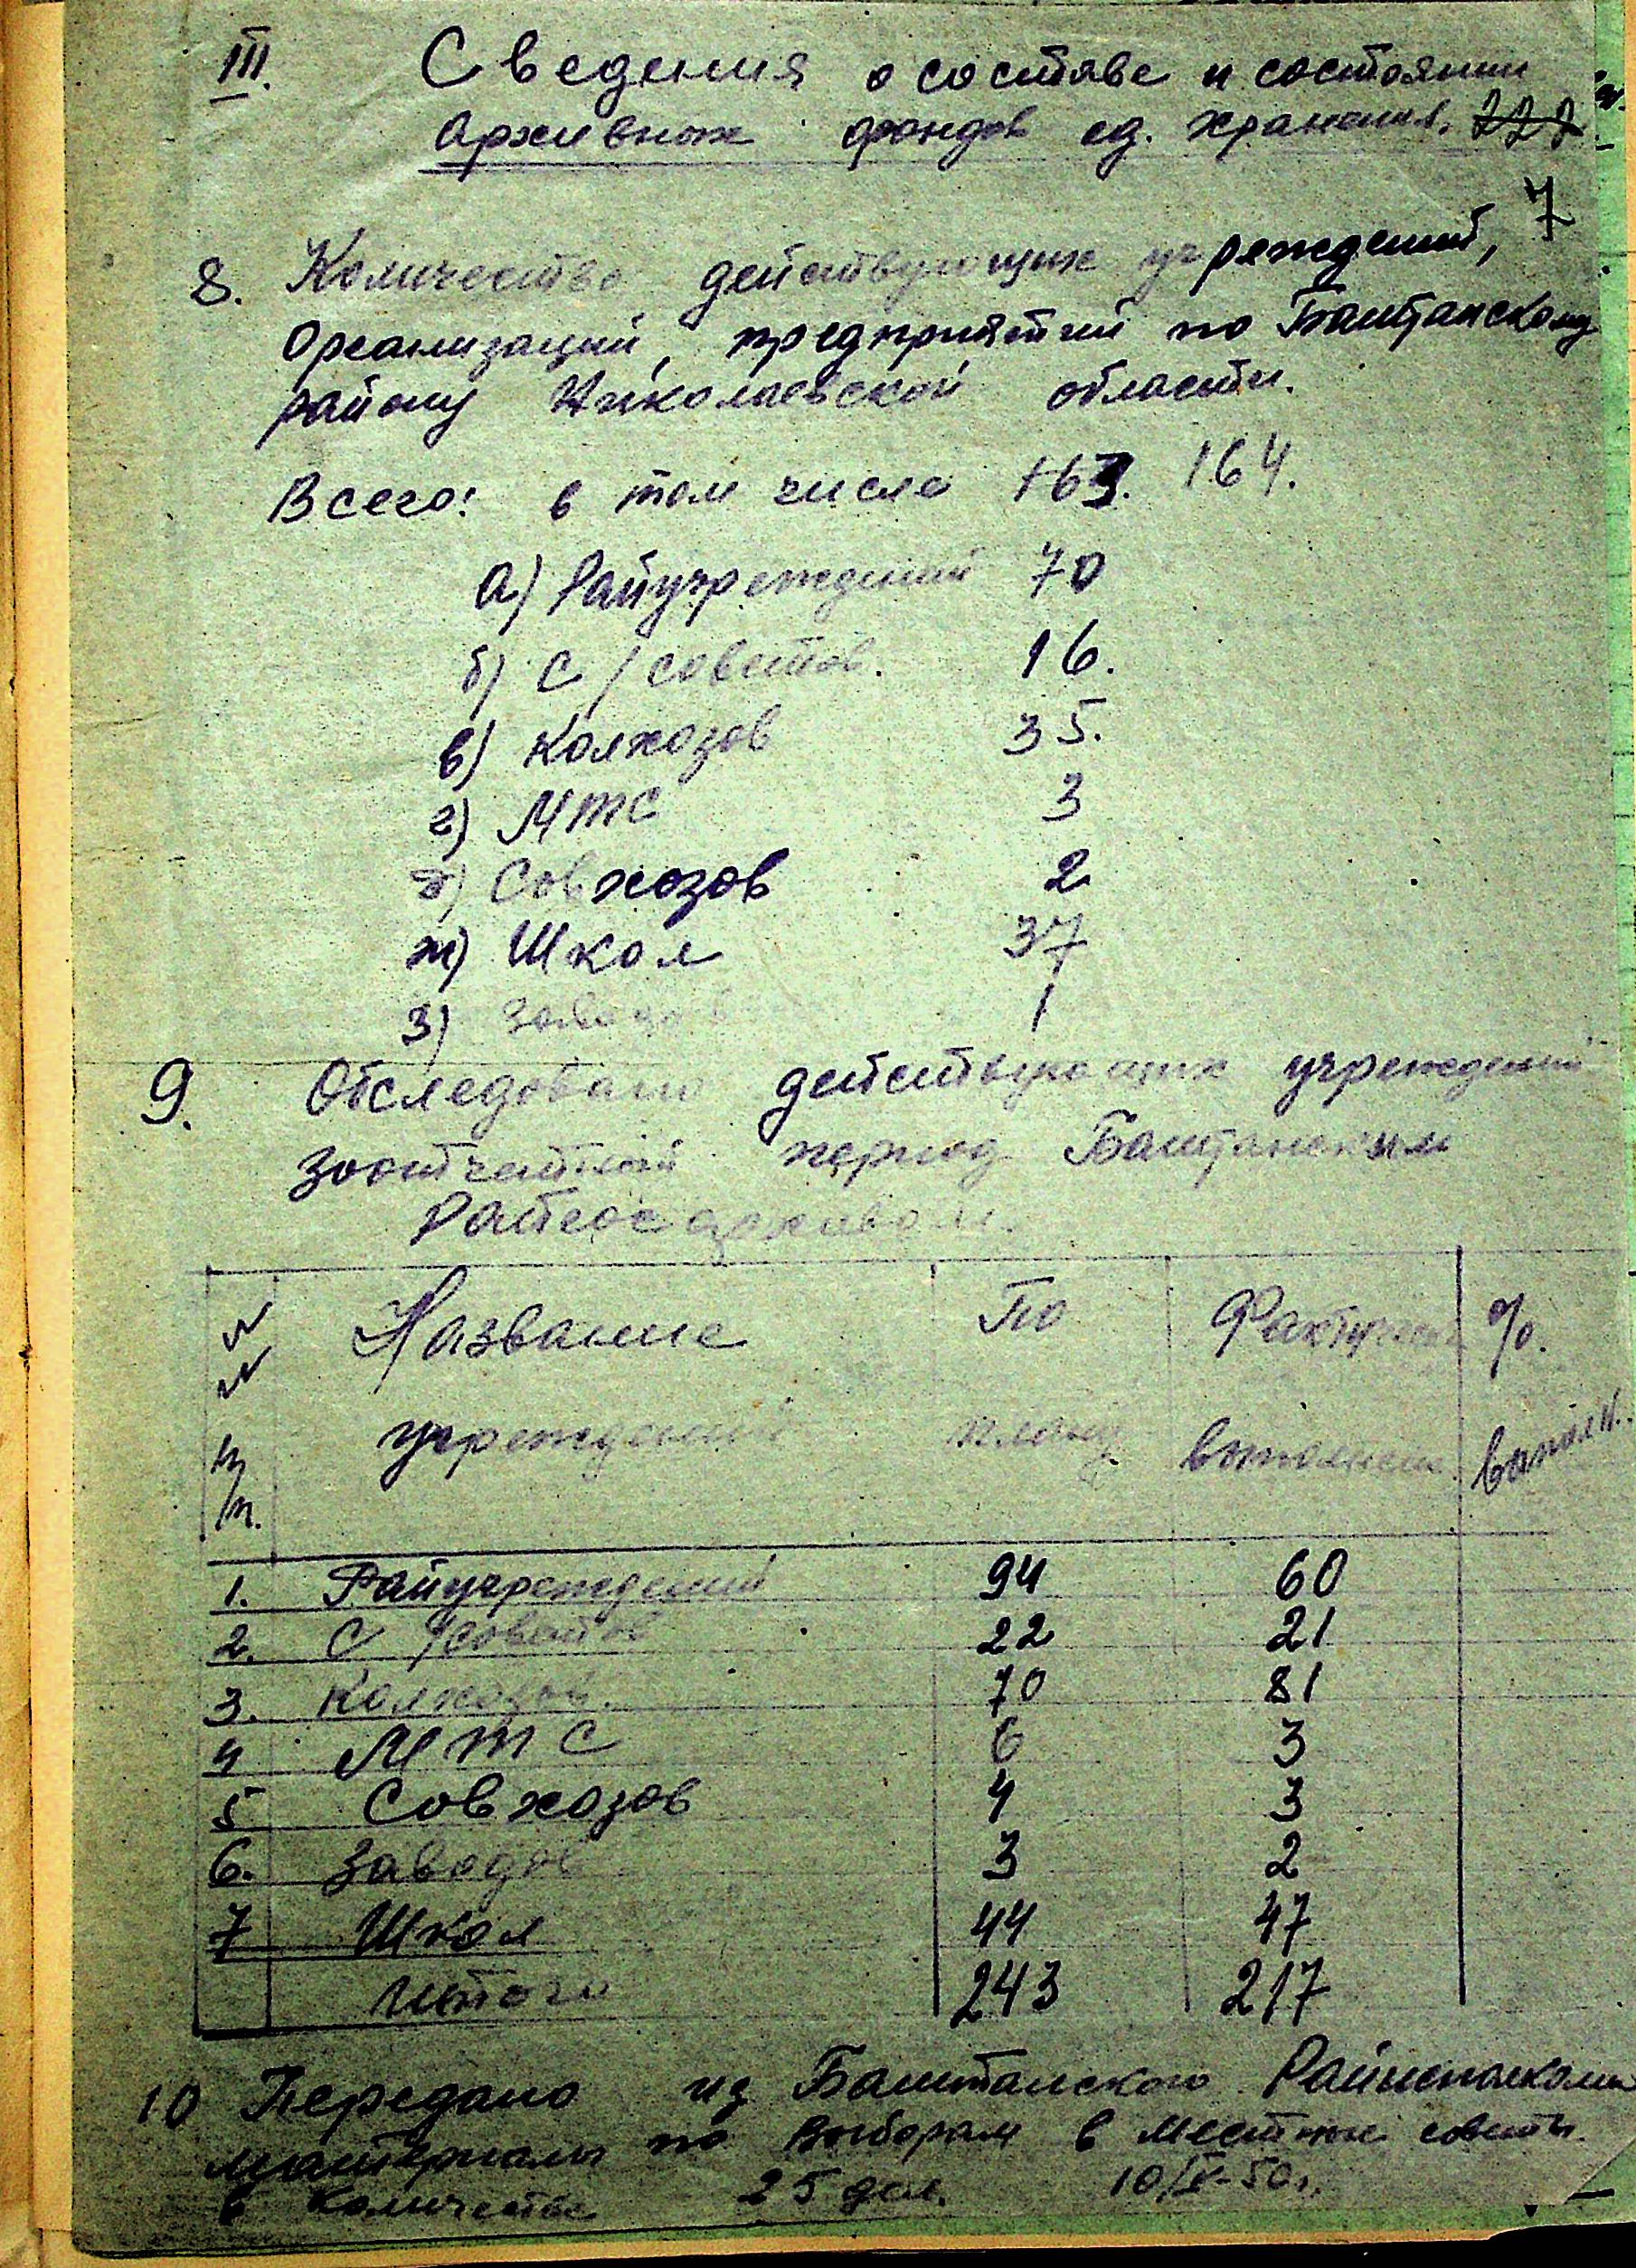 III. Сведения о составе и состоянии
Архивных фондов ед. хранения.
7
8. Количество действующих учреждений,
Организаций, предприятий по Баштанскому
району Николаевской области.
Всего: в том числе 163. 164.
а) Райучреждений 70
б) С/советов. 16.
в) Колхозов 35.
г) МТС 3
Совхозов 2
ж) Школ 37
з) Заводов 1
9. Обследовано действующих учреждений
за отчетный период Баштанским
Райгосархивом.
№ Название По Фактическ %.
№
п/п. учреждений плану выполнен. выполн.
1. Райучреждений 94 60
2. С/советов 22 21
3. Колхозов. 70 81
4 МТС 6 3
5 Совхозов 4 3
6. Заводов 3 2
7 Школ 44 47
Итого 243 217
10 Передано из Баштанского Райисполкома
материалы по Выборам в местные советы.
в количестве 25 дел. 10/IV-50г.